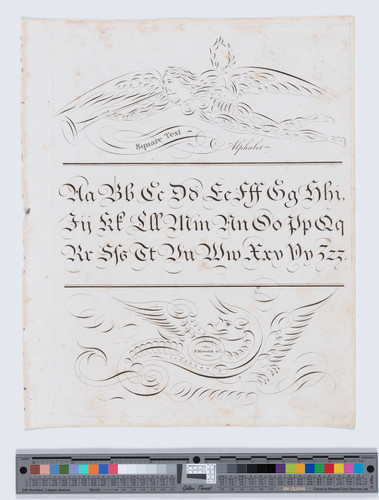 Square Text
Alphabet
Aa Bb Cc Dd Ee Fff Gg Hhi.
Jij Kk Lll Mm Nn Oo Pp Qq
Rr Sſs Tt Vu Ww Xxy Yy Zzz.
Golden Thread